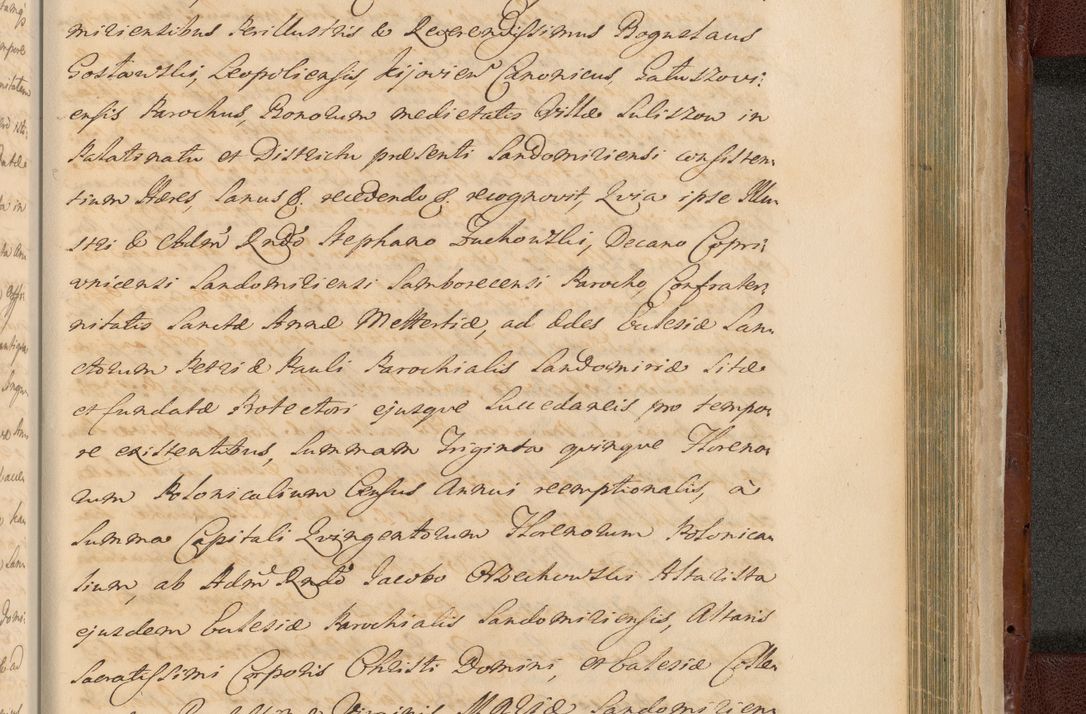 miriensibus Perillustris & Reverendissimus Bogustaus
Gostawski, Leopoliensis, Kijovien Canonicus, Gatuszovi:
ensis Parochus, Bonorum medietatis Villæ Suliszow in
Palatinatu et Districtu præsenti Sandomiriensi consisten,
tium Hæres, Sanus &. recedendo &. recognovit, Quia ipse Illu,
stri & Adm Rndo Stephano Zuchowski, Decano Copri:
vnicensi Sandomiriensi Samborecensi Parocho, Confrater,
nitatis Sanctæ Annæ Mettertiæ, ad Ædes Eclesiæ San,
ctorum Petri & Pauli Parochialis Sandomiriæ Sitæ
et fundatæ Protectori ejusque Succedaneis pro tempo,
re existentibus, Summam Triginta quinque Floreno,
rum Polonicalium Census Annui reemptionalis, à
Summa Capitali Quingentorum Florenorum Polonica,
lium, ab Adm Rndo Jacobo Orzechowski Altarista
ejusdem Eclesiæ Parochialis Sandomiriensis, Altaris
Sacratissimi Corporis Christi Domini, et Eclesiæ Colle,
Virginis MARIÆ Sandomirien,